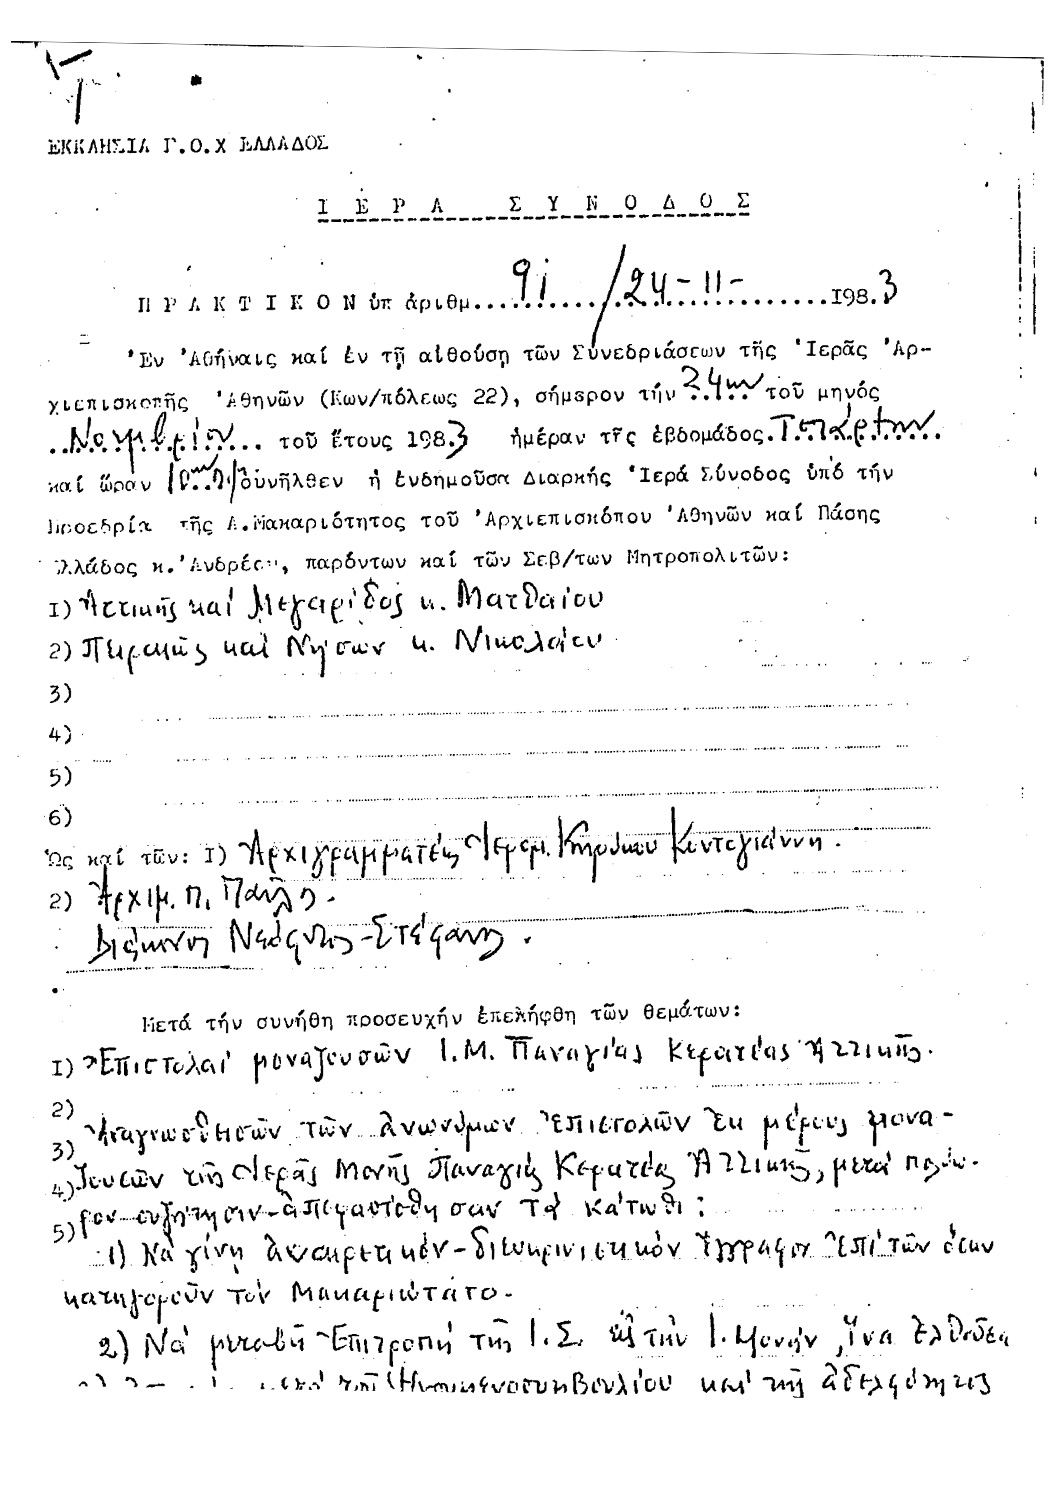 ΕΚΚΛΗΣΙΑ Γ.Ο.Χ ΕΛΛΑΔΟΣ
ΙΕΡΑ ΣΥΝΟΔΟΣ
ΠΡΑΚΤΙΚΟΝ ὑπ ἀριθμ....91..../24-11-......198.3
Ἐν Ἀθήναις καί ἐν τῇ αἰθούσῃ τῶν Συνεδριάσεων τῆς Ἱερᾶς Ἀρ-
χιεπισκοπῆς Ἀθηνῶν (Κων/πόλεως 22), σήμερον τήν 24ην τοῦ μηνός
..Νοεμβρίου... τοῦ ἔτους 1983 ἡμέραν τῆς ἑβδομάδος.Τετάρτην.
καί ὥραν 10 συνῆλθεν ἡ ἐνδημοῦσα Διαρκής Ἱερά Σύνοδος ὑπό τήν
Προεδρία τῆς Α.Μακαριότητος τοῦ Ἀρχιεπισκόπου Ἀθηνῶν καί Πάσης
λλάδος κ.Ἀνδρέου, παρόντων καί τῶν Σεβ/των Μητροπολιτῶν:
1) Ἀττικῆς καί Μεγαρίδος κ. Ματθαίου
2) Πειραιῶς καί Νήσων κ. Νικολάου
3)
4)
5)
6)
Ὡς καί τῶν: 1) Ἀρχιγραμματέως Ἱερομ. Κηρύκου Κοντογιάννη.
2) Ἀρχιμ. π. Παύλου.
Διακόνου Νεόφυτος-Στέφανος.
Μετά τήν συνήθη προσευχήν ἐπελήφθη τῶν θεμάτων:
1) Ἐπιστολαί μοναζουσῶν Ι.Μ. Παναγίας Κερατέας Ἀττικῆς.
2)
3) Ἀναγνωσθεισῶν τῶν ἀνωνύμων ἐπιστολῶν ἐκ μέρους μονα-
4) ζουσῶν τῆς Ἱερᾶς Μονῆς Παναγίας Κερατέας Ἀττικῆς, μετά πολύω-
5) ρον συζήτησιν ἀπεφασίσθησαν τά κάτωθι:
1) Νά γίνῃ ἀναιρετικόν-διευκρινιστικόν ἔγγραφον ἐπί τῶν ὅσων
κατηγοροῦν τόν Μακαριώτατο.
2) Νά μεταβῇ Ἐπιτροπή τῆς Ι.Σ. εἰς τήν Ι. Μονήν, ἵνα ἐλθοῦσα
τοῦ Ἡγουμενοσυμβουλίου καί τῆς ἀδελφότητος